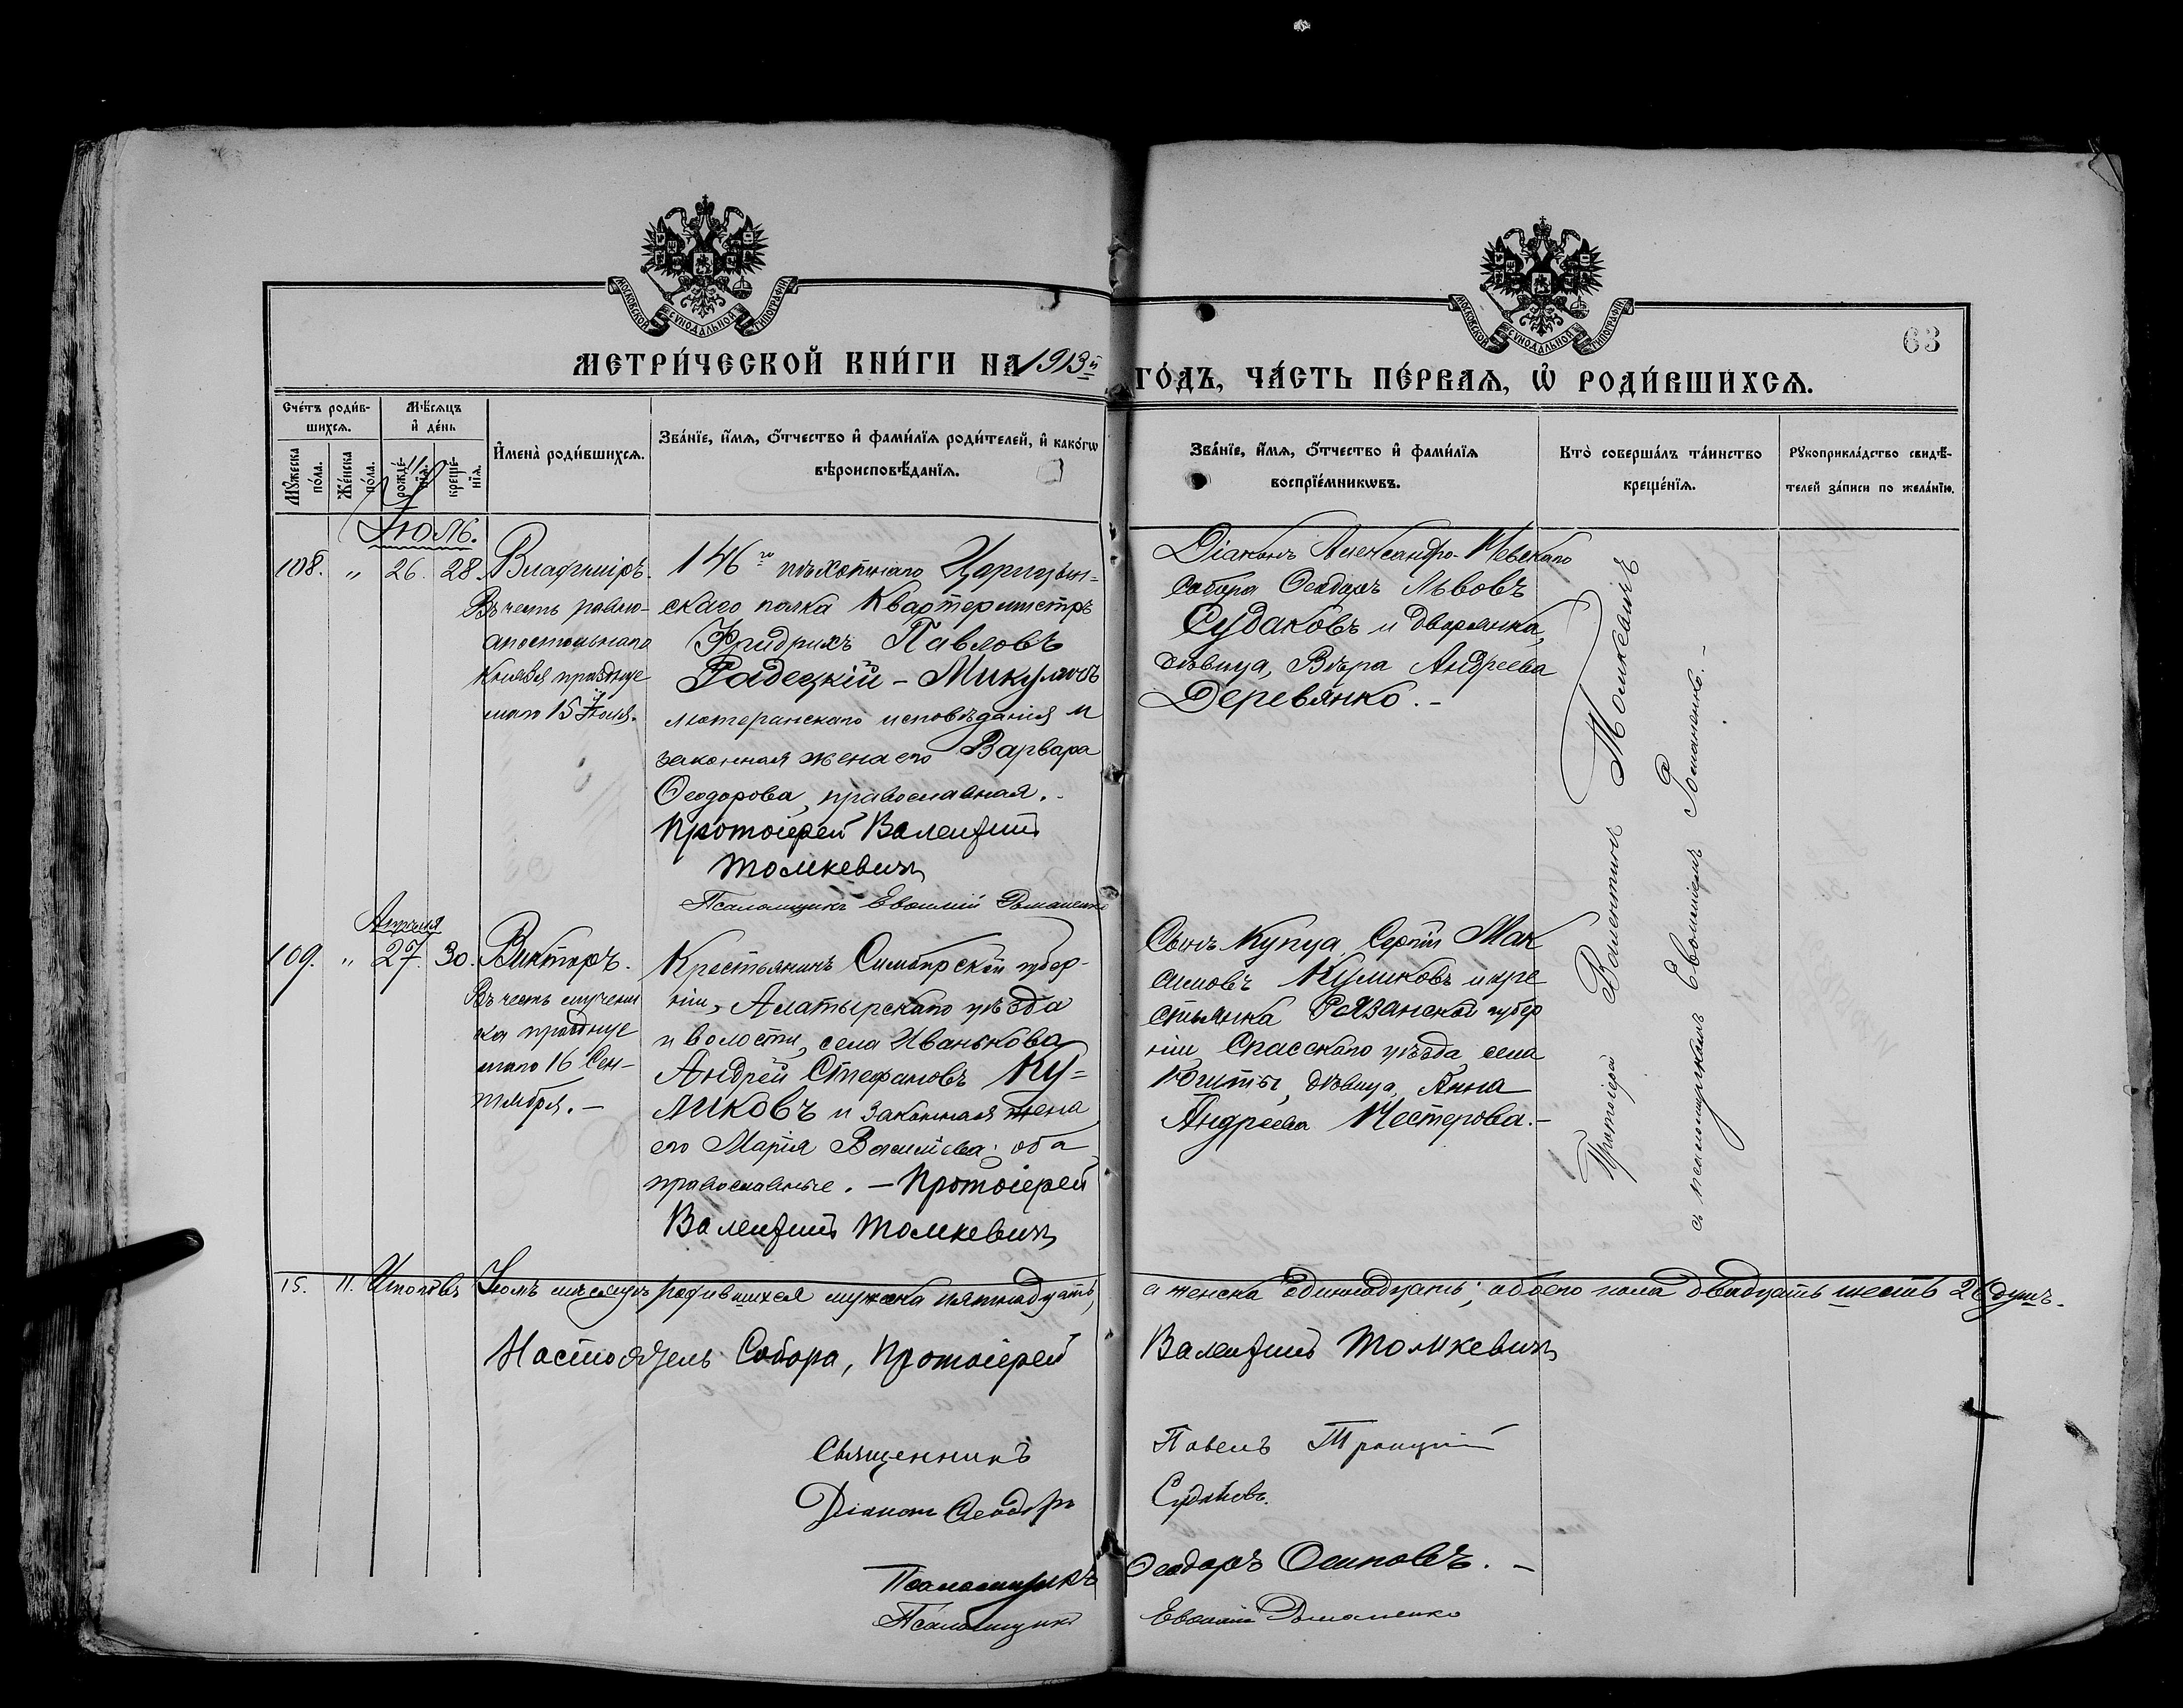 МОСКОВСКОЙ СѴНОДАЛЬНОЙ ТИПОГРАФІИ
МОСКОВСКОЙ СѴНОДАЛЬНОЙ ТИПОГРАФІИ
63
МЕТРИ́ЧЕСКОЙ КНИ́ГИ НА 1913й ГО́ДЪ, ЧА́СТЬ ПЕ́РВАѦ, Ѡ҆ РОДИ́ВШИХСѦ.
Сче́тъ роди́в-
шихсѧ.
Мꙋ́жеска по́ла.
Же́нска по́ла.
Мѣ́сѧцъ
и҆ де́нь
рожде́-
нїѧ.
креще́-
нїѧ.
И҆мена̀ роди́вшихсѧ.
Зва́нїе, и҆́мѧ, ѻ҆́тчество и҆ фами́лїѧ роди́телей, и҆ како́гѡ
вѣроисповѣ́данїѧ.
Зва́нїе, и҆́мѧ, ѻ҆́тчество и҆ фами́лїѧ
воспрїе́мникѡвъ.
Кто̀ соверша́лъ та́инство
креще́нїѧ.
Рꙋкоприкла́дство свидѣ́-
телей за́писи по жела́нїю.
Іюль.
108. " 26. 28. Владиміръ.
Въ честь равно-
апостольнаго
Князя праздную
маго 15 Іюля.
146го пѣхотнаго Царицын-
скаго полка Квартермистръ
Фридрихъ Павловъ
Радецкій - Микуличъ
лютеранскаго исповѣданія и
законная жена его Варвара
Ѳеодорова, православная. -
Протоіерей Валентинъ
Томкевичъ
Псаломщикъ Евсигній Романенко
Діаконъ Александро-Невскаго
Собора Ѳеодоръ Львовъ
Судаковъ и дворянка,
дѣвица, Вѣра Андреева
Деревянко. -
Апреля
109. " 27. 30. Викторъ.
Въ честь мучени
ка праздную
маго 16 Сен-
тября. -
Крестьянинъ Симбирской губер-
ніи, Алатырскаго уѣзда
и волости, села Иванькова
Андрей Стефановъ Ку=
ликовъ и законная жена
его Марія Васильева; оба
православные. - Протоіерей
Валентинъ Томкевичъ
Сынъ купца Сергій Мак
симовъ Куликовъ и кре
стьянка Рязанской губер
ніи, Спасскаго уѣзда, села
дѣвица, Анна
Андреева Нестерова. -
Протоіерей Валентинъ Томкевичъ
съ псаломщикомъ Романенко. -
15. 11. Итого въ Іюлѣ мѣсяцѣ родившихся мужска пятнадцать, а женска одиннадцать; обоего пола двадцать шесть 26 душъ.
Настоятель Собора, Протоіерей Валентинъ Томкевичъ
Священникъ Павелъ Троицкій
Діаконъ Ѳеодоръ Судаковъ.
Псаломщикъ Ѳеодоръ Осиповъ. -
Псаломщикъ Евсигній Романенко